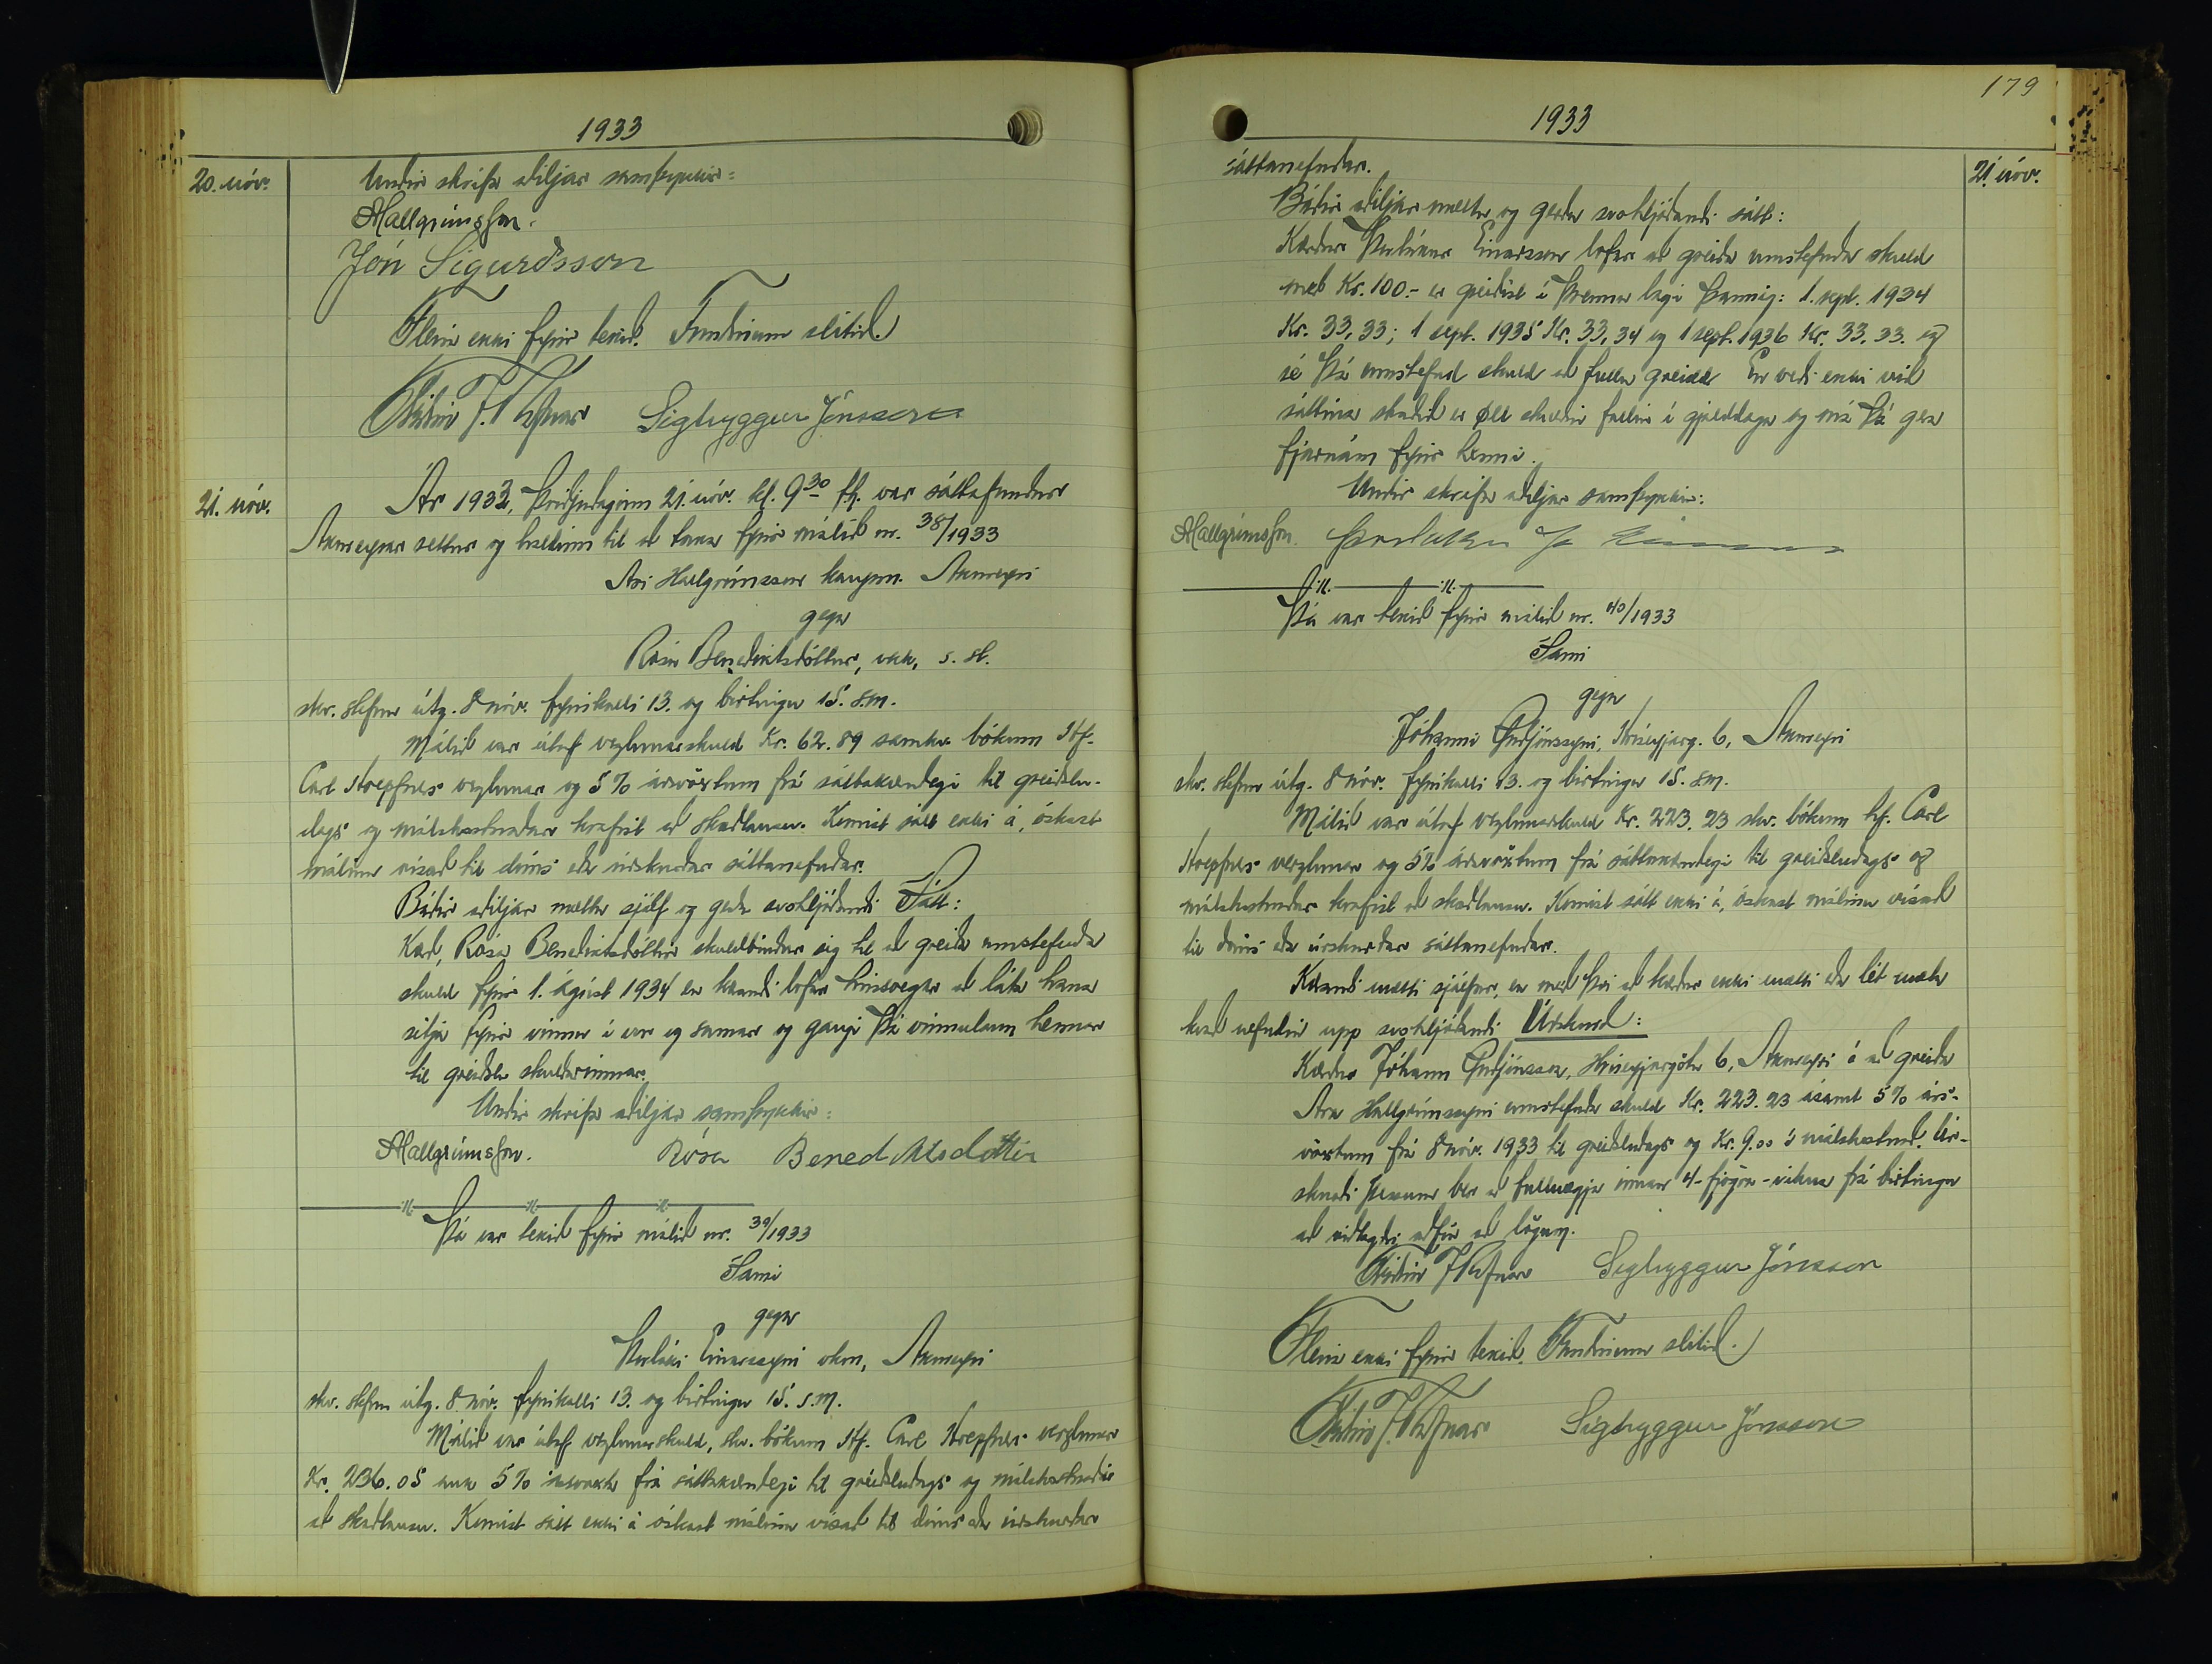 1933
20. nóv.
Undir skrifa aðiljar samþykkir:
AHallgrímsson.
Jón Sigurðsson
Fleira ekki fyrir tekið. Fundinum slitið.
Sigtryggur Jónsson
21. nóv.
Ár 1933, þriðjudaginn 21. nóv. kl. 9 30 f.h. var sáttafundur
Akureyrar settur og haldinn til að taka fyrir málið nr. 38/1933
Ari Hallgrímsson kaupm. Akureyri
gegn
Rósu Benediktsdóttur, vkk, s. st.
skv. stefnu útg. 8 nóv. fyrirkalli 13. og birtingu 15. s.m.
Málið var útaf verzlunarskuld Kr. 62.89 samkv. bókum H/f.
Carl Höepfners verzlunar og 5% ársvöxtum frá sáttakærudegi til greiðslu-
dags og málskostnaðar krafist að skaðlausu. Komist sátt ekki á, óskast
málinu vísað til dóms eða úrskurðar sáttanefndar.
Báðir aðiljar mættu sjálf og gerðu svohljóðandi Sátt:
Kærð, Rósa Benediktsdóttir skuldbindur sig til að greiða umstefnda
skuld fyrir 1. ágúst 1934 en kærandi lofar hinsvegar að láta hana
sitja fyrir vinnu í vor og sumar og gangi þá vinnulaun hennar
til greiðslu skuldarinnar.
Undir skrifa aðiljar samþykkir:
AHallgrímsson. Rósa Benediktsdóttir
Þá var tekið fyrir málið nr. 39/1933
Sami
gegn
Þorláki Einarssyni ökm, Akureyri
skv. stefnu útg. 8 nóv. fyrirkalli 13. og birtingu 15. s.m.
Málið var útaf verzlunarskuld, skv. bókum H/f. Carl Höepfners verzlunar
Kr. 236.05 auk 5% ársvaxta frá sáttakærudegi til greiðsludags og málskostnaðar
að skaðlausu. Komist sátt ekki á óskast málinu vísað til dóms eða úrskurðar
179
1933
21. nóv.
sáttanefndar.
Báðir aðiljar mættu og gerðu svohljóðandi sátt:
Kærður Þorlákur Einarsson lofar að greiða umstefnda skuld
með Kr. 100.- er greiðist í þrennu lagi þannig: 1. sept. 1934
Kr. 33,33; 1 sept. 1935 Kr. 33,34 og 1 sept. 1936 Kr. 33.33. og
sé þá umstefnd skuld að fullu greidd En verði ekki við
sáttina staðið er öll skuldin fallin í gjalddaga og má þá gera
fjárnám fyrir henni.
Undir skrifa aðiljar samþykkir:
AHallgrímsson. Þorlákur
Þá var tekið fyrir málið nr. 40/1933
Sami
gegn
Jóhanni Guðjónssyni, Hríseyjarg. 6, Akureyri
skv. stefnu útg. 8 nóv. fyrirkalli 13. og birtingu 15. s.m.
Málið var útaf verzlunarskuld Kr. 223.23 skv. bókum hf. Carl
Höepfners verzlunar og 5% ársvöxtum frá sáttakærudegi til greiðsludags og
málskostnaðar krafist að skaðlausu. Komist sátt ekki á, óskast málinu vísað
til dóms eða úrskurðar sáttanefndar.
Kærandi mætti sjálfur, en með því að kærður ekki mætti eða lét mæta
kvað nefndin upp svohljóðandi Úrskurð:
Kærður Jóhann Guðjónsson, Hríseyjargötu 6, Akureyri á að greiða
Ara Hallgrímssyni umstefnda skuld Kr. 223.23 ásamt 5% árs-
vöxtum frá 8 nóv. 1933 til greiðsludags og Kr. 9.00 í málskostnað. Úr-
skurði þessum ber að fullnægja innan 4 - fjögra - vikna frá birtingu
að viðlagðri aðför að lögum.
Sigtryggur Jónsson
Fleira ekki fyrir tekið. Fundinum slitið.
Sigtryggur Jónsson